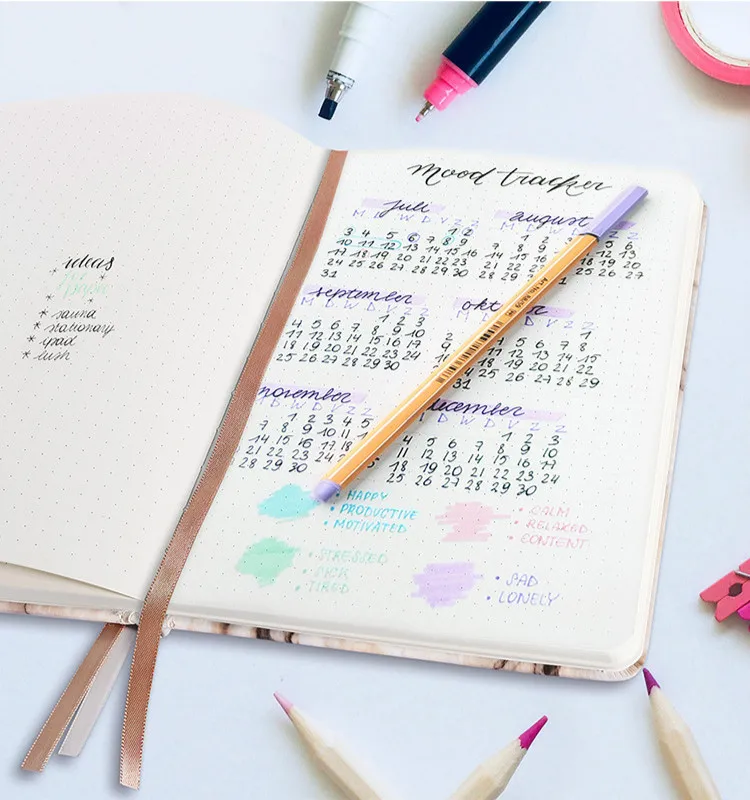 ideas
* sauna
* stationary
* ipad
* lush
mood tracker
juli
M D W D V Z Z
1 2
3 4 5 6 7 8 9
10 11 12 13 14 15 16
17 18 19 20 21 22 23
24 25 26 27 28 29 30
31
august
1 2 3 5 6
7 8 9 10 12 13
14 15 16 18 19 20
21 22 23 25 26 27
28 29 31
september
M D W D V Z Z
1 2 3
4 5 6 7 8 9 10
11 12 13 14 15 16 17
18 19 20 21 22 23 24
25 26 27 28 29 30
okt er
1
2 3 5 6 7 8
9 11 12 13 14 15
18 19 20 21 22
25 26 27 28 29
31
november
M D W D V Z Z
1 2 3 4 5
7 8 9 10 11
14 15 16 17 18
21 22 23 24
28 29 30
december
D W D V Z Z
1 2 3
4 5 6 7 8 9 10
11 12 13 14 15 16 17
18 19 20 21 22 23 24
25 26 27 28 29 30 31
• HAPPY
• PRODUCTIVE
• MOTIVATED
• CALM
• RELAXED
• CONTENT
• STRESSED
• SICK
• TIRED
• SAD
• LONELY